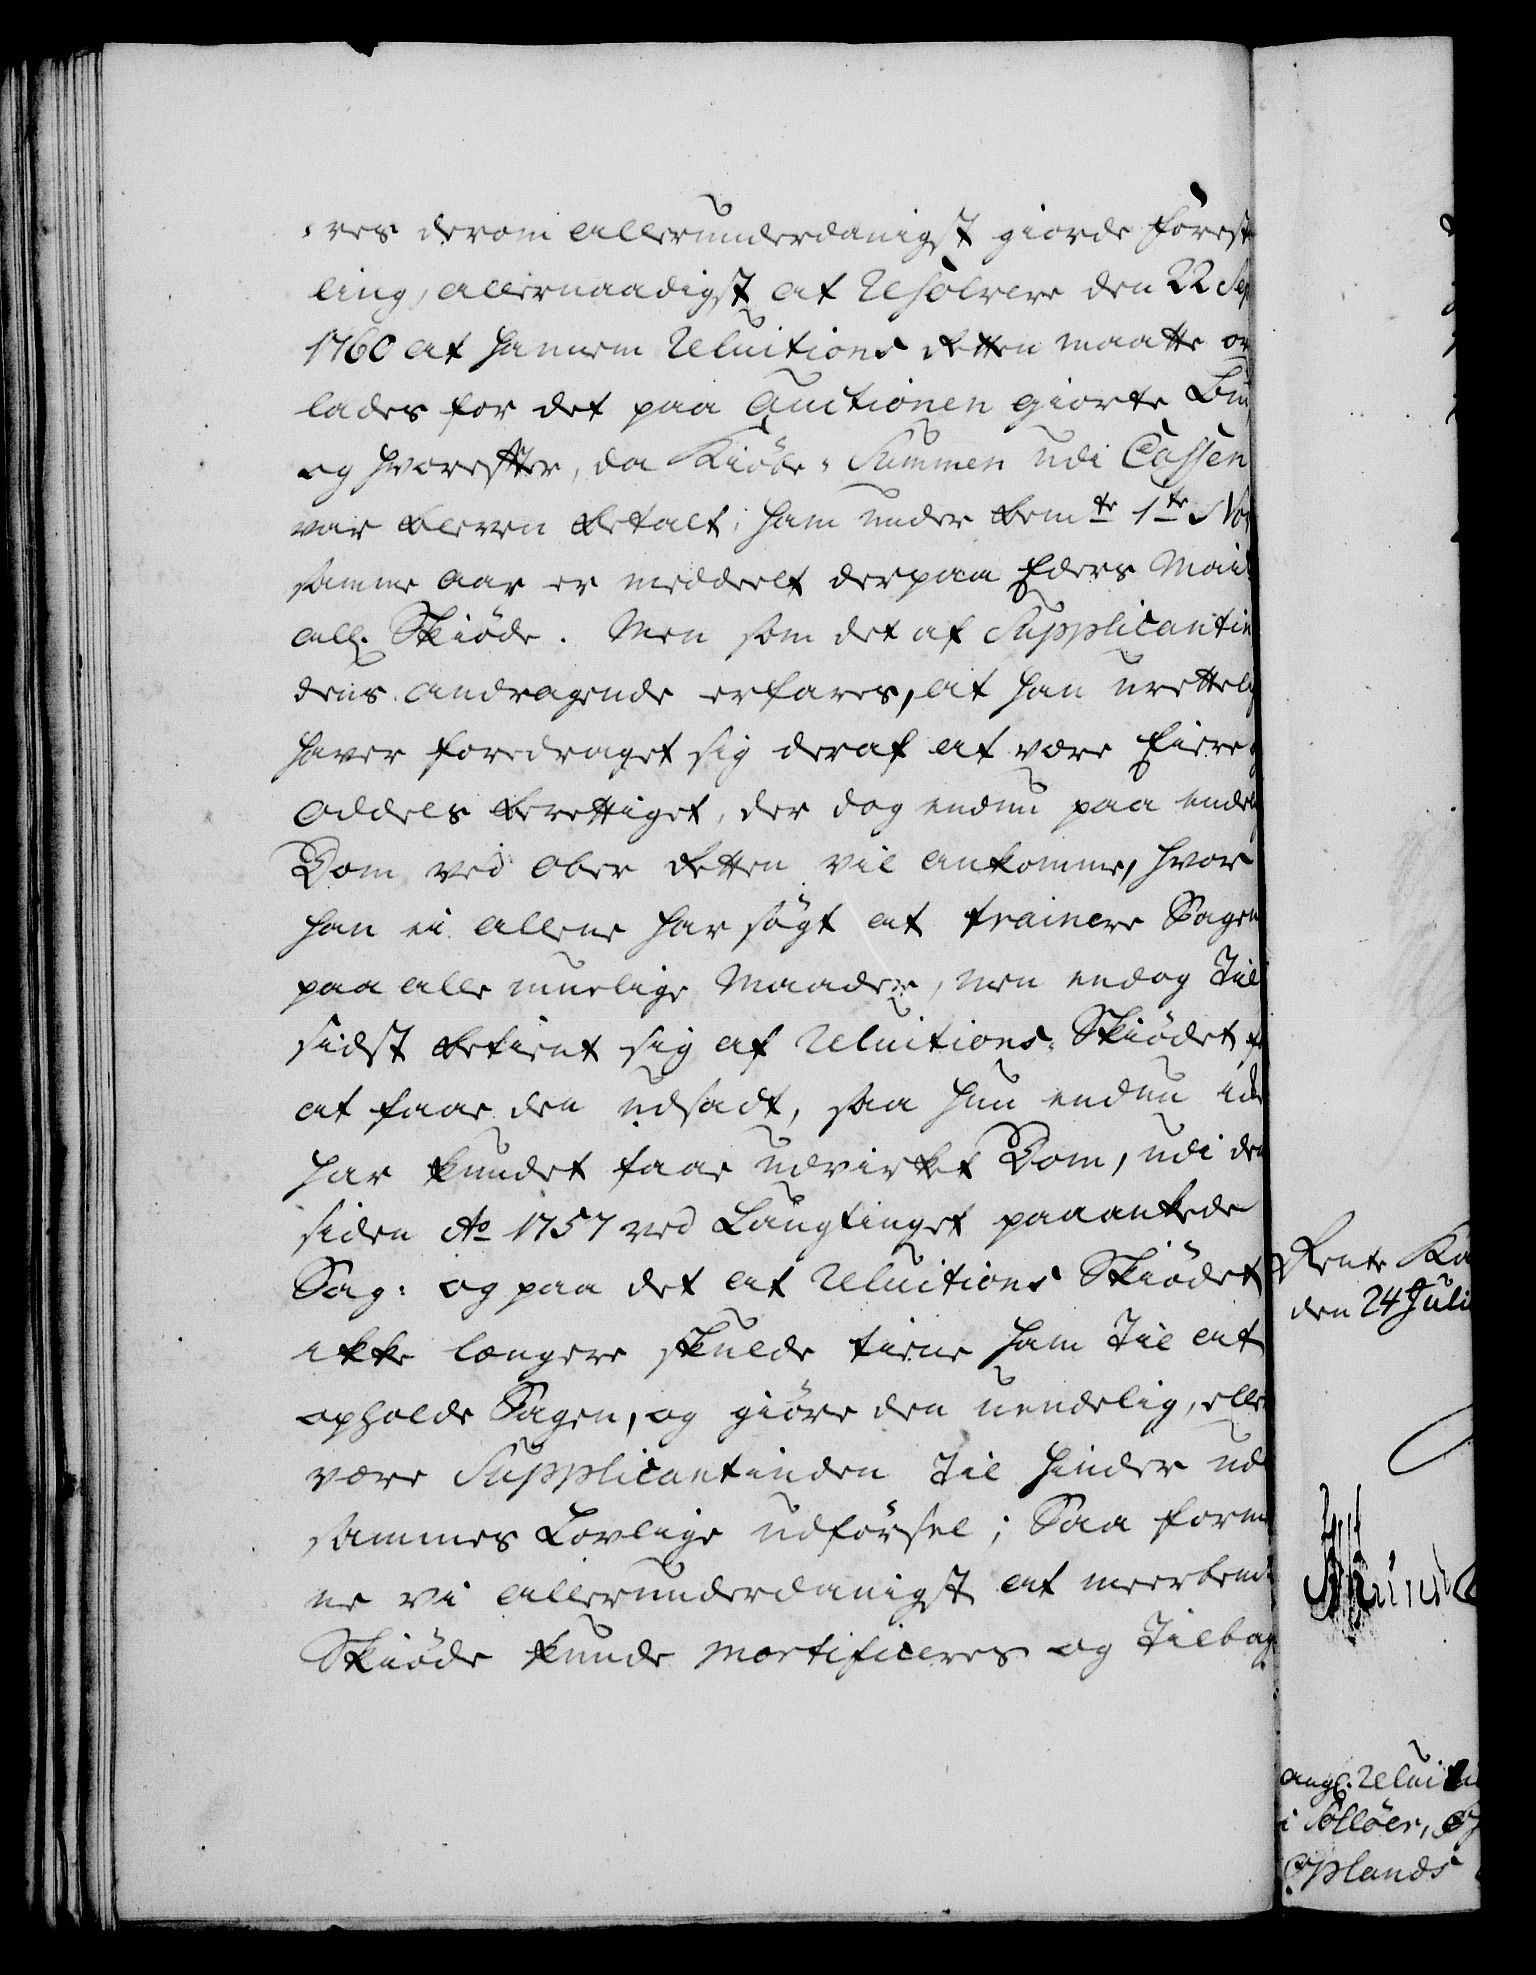 res derom allerunderdanigst giorde forest
ling, allernaadigst at Resolvere den 22 Sep
1760 at hannem Reluitions Retten maatte ov
lades for det paa Auctionen giorte Bud
og hvorefter, da Kiöbe-Summen udi Cassen
var bleven betalt, ham under bemte 1te Nov
samme Aar er meddeelt derpaa Eders Mai
all. Skiöde. Men som det af Supplicantin
dens andragende erfares, at han urettelig
haver foredraget sig deraf at være Eiere
Oddels berettiget, der dog endnu paa endel
Dom ved Ober Retten vil ankomme, hvor
han ei allene har sögt at trainere Sagen
paa alle muelige Maader, men endog Til
sidst betient sig af Reluitions-Skiödet f
at faae den udsadt, saa hun endnu ik
har kundet faae udvirket Dom, udi den
siden Ao 1757 ved Laugtinget paaankede
Sag: og paa det at Reluitions Skiödet
ikke længere skulde tiene ham Til at
opholde Sagen, og giöre den uendelig, elle
være Supplicantinden Til hinder ud
sammes Lovlige udförsel; Saa form
ne vi allerunderdanigst at meerbem
Skiöde kunde mortificeres og Tilbag
Rente Ka
den 24 Juli
ang. Reluiti
i Sollöer,
Oplands